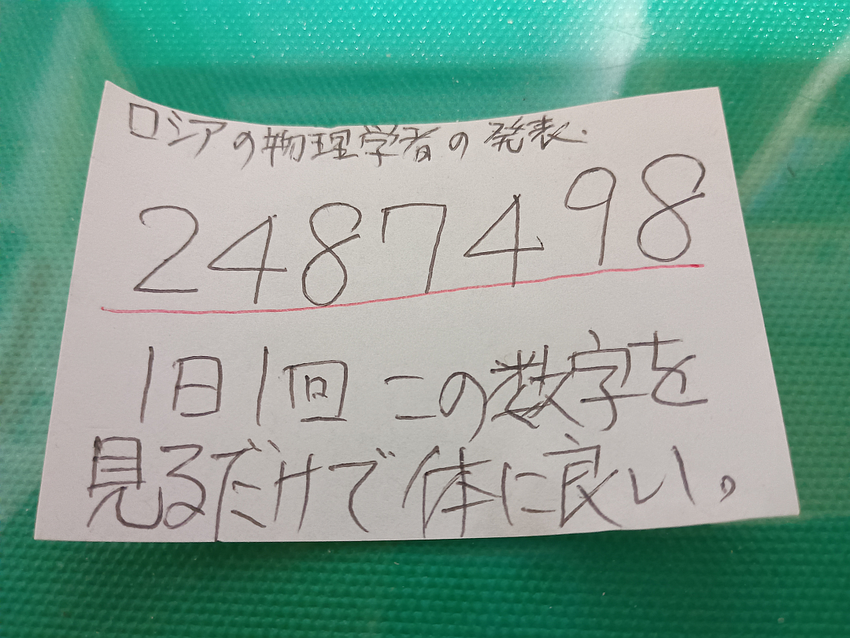 ロシアの物理学者の発表.
2487498
1日1回 この数字を
見るだけで体に良い。